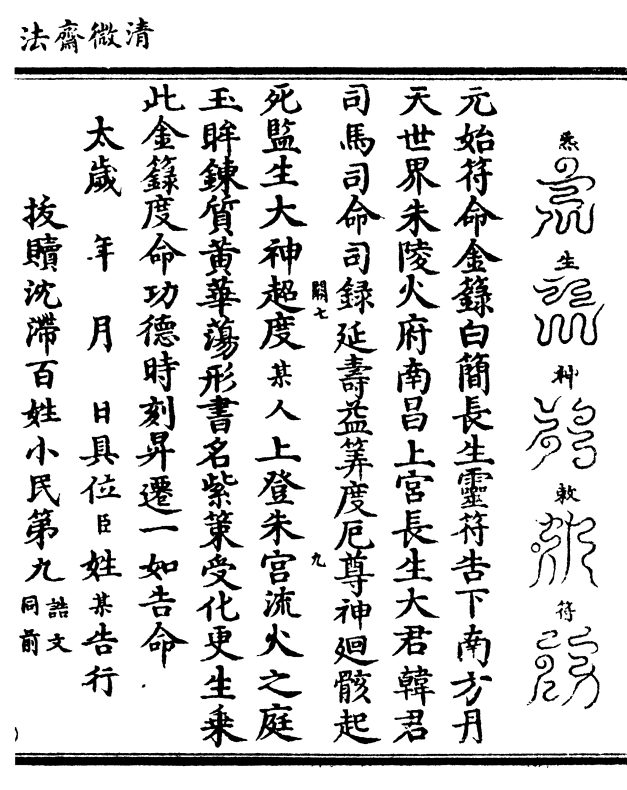 清微齋法
炁生神敕符
元始符命金籙白簡長生靈符告下南方丹
天世界朱陵火府南昌上宮長生大君韓君
司馬司命司錄延壽益筭度厄尊神廻骸起
關七 九
死監生大神超度某人上登朱宮流火之庭
玉眸鍊質黃華蕩形書名紫策受化更生乗
此金籙度命功德時刻昇遷一如告命
太歲 年 月 日具位臣姓某告行
拔贖沈滯百姓小民第九誥文同前